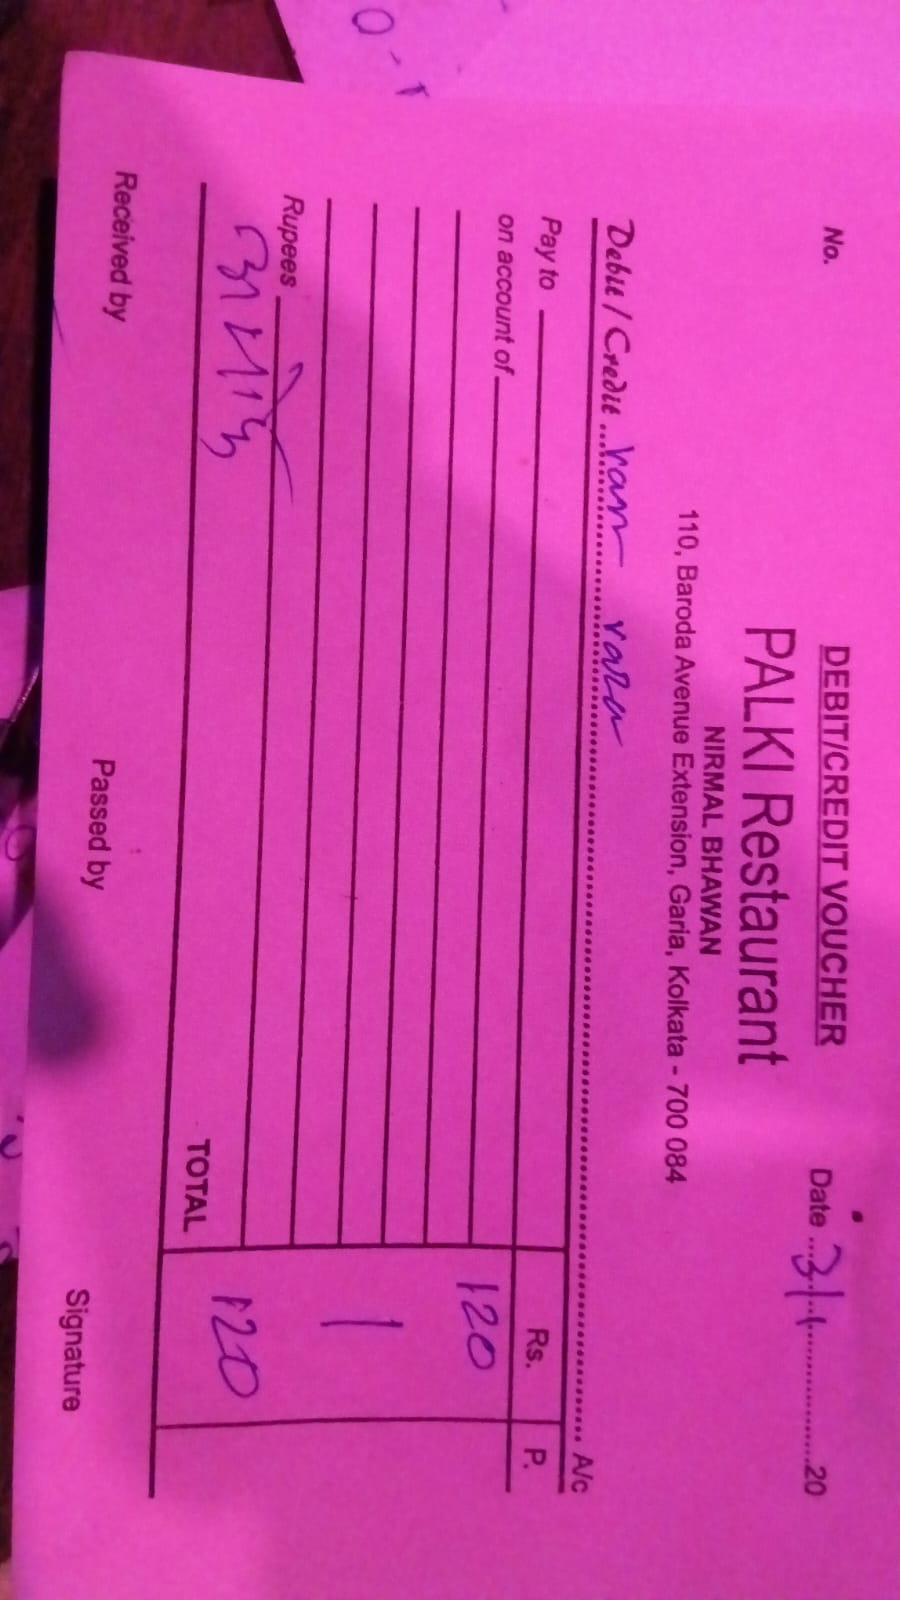 DEBIT/CREDIT VOUCHER
No.
Date ...3/1...............20
PALKI Restaurant
NIRMAL BHAWAN
110, Baroda Avenue Extension, Garia, Kolkata - 700 084
Debit / Credit ... A/c
Pay to
Rs. P.
on account of
120
Rupees
TOTAL 120
Received by Passed by Signature